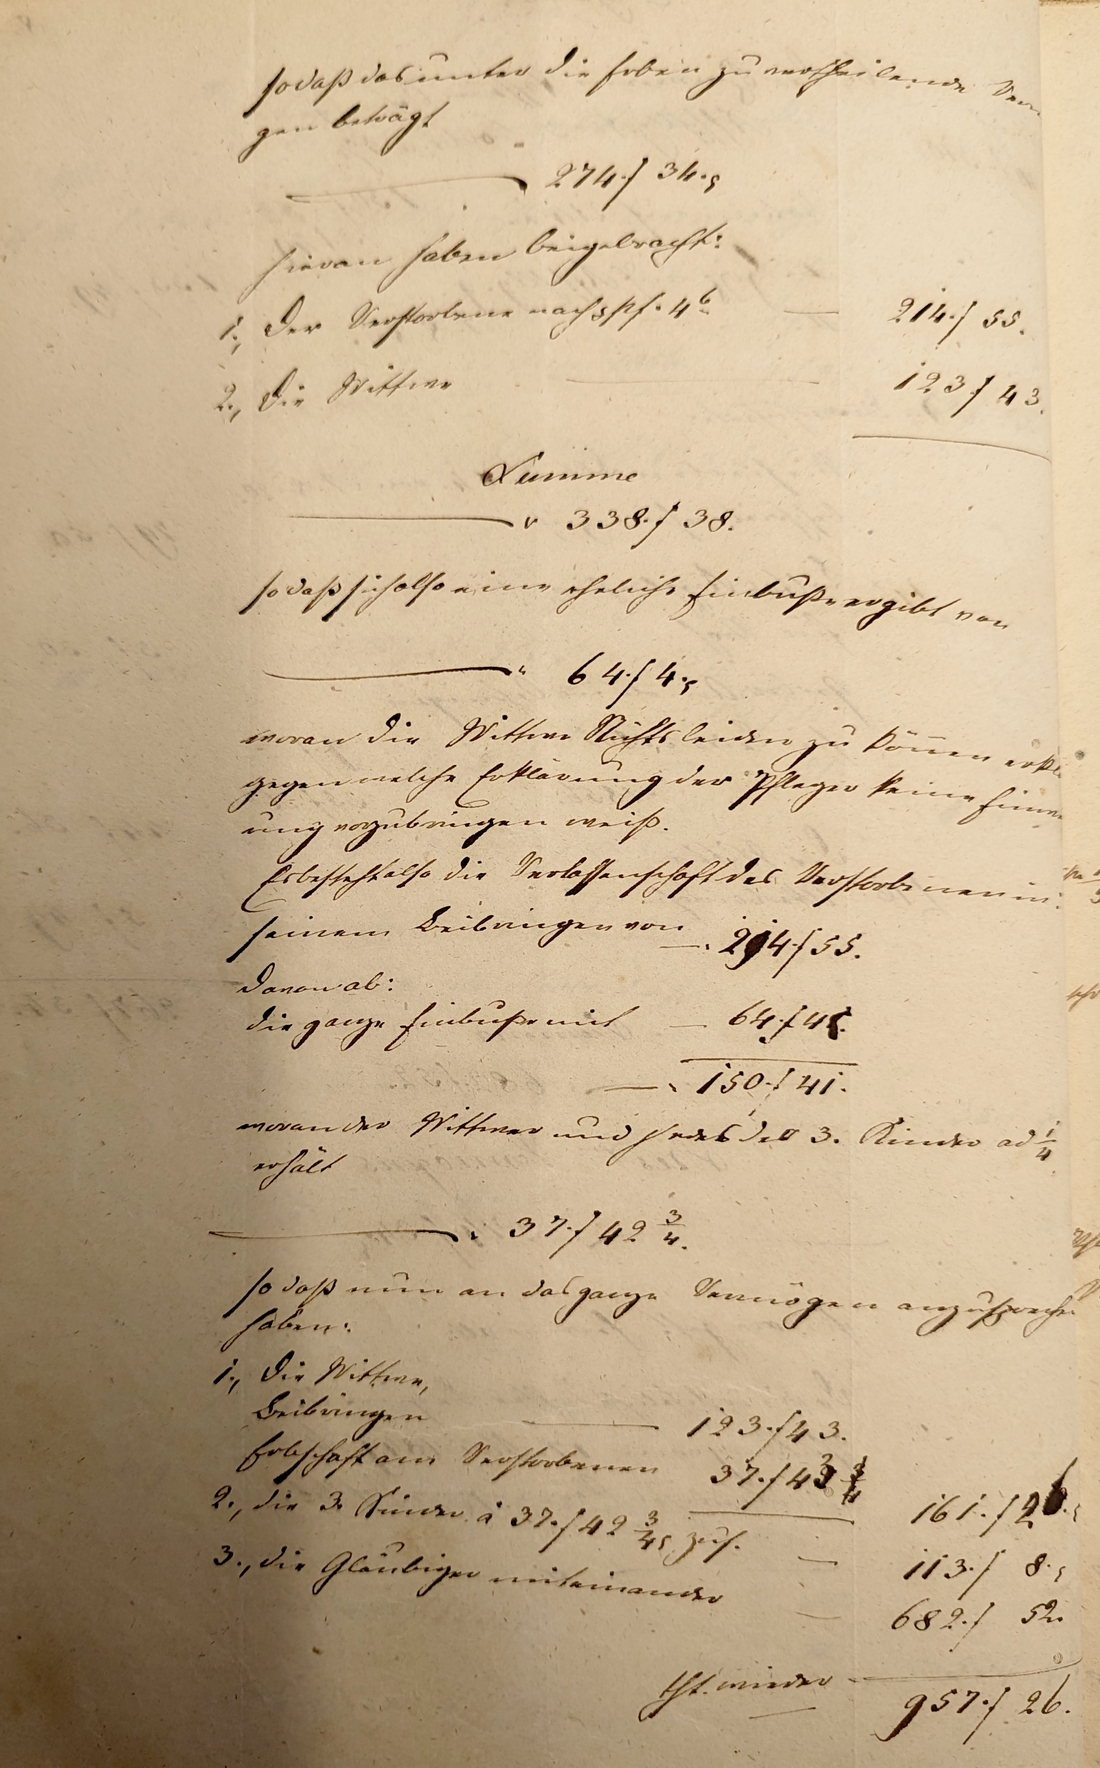 so daß das unter die Erben zu vertheilende Ver
gen beträgt
274. f 34.
Hievon haben beigebracht:
1., Der Verstorbene nach 4 b 214. f 55.
2., Die Wittwe 123. f 43.
Summe
338. f 38.
so daß sich also eine eheliche Einbuße ergibt von
64. f 4.
woran die Wittwe Nichts leiden zu können erkl
gegen welche Erklärung der Pfleger keine Einwe
ung vorzubringen weiß.
Es besteht also die Verlassenschaft des Verstorbenen in:
seinem Beibringen von 214. f 55.
Davon ab:
die ganze Einbuße mit 64. f 4.
150. f 41.
woran der Wittwer und jedes der 3. Kinder ad 1/4
erhält
37. f 42 3/4.
so daß nun an das ganze Vermögen anzusprechen
haben:
1., Die Wittwe,
Beibringen 123. f 43.
Erbschaft am Verstorbenen 37. f 43
161. f 26.
2., die 3. Kinder à 37. f 42 3/4 zus. 113. f 8.
3., die Gläubiger miteinander 682. f 52.
tht. wieder 957. f 26.